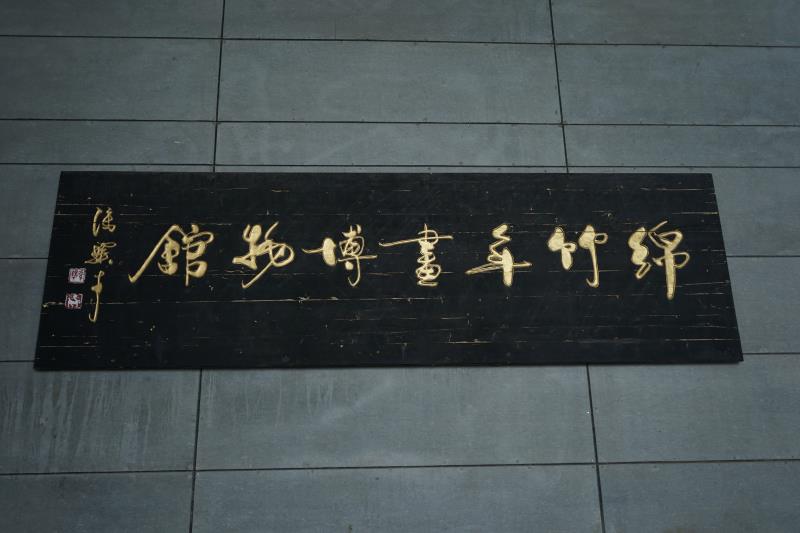 綿竹年畫博物館